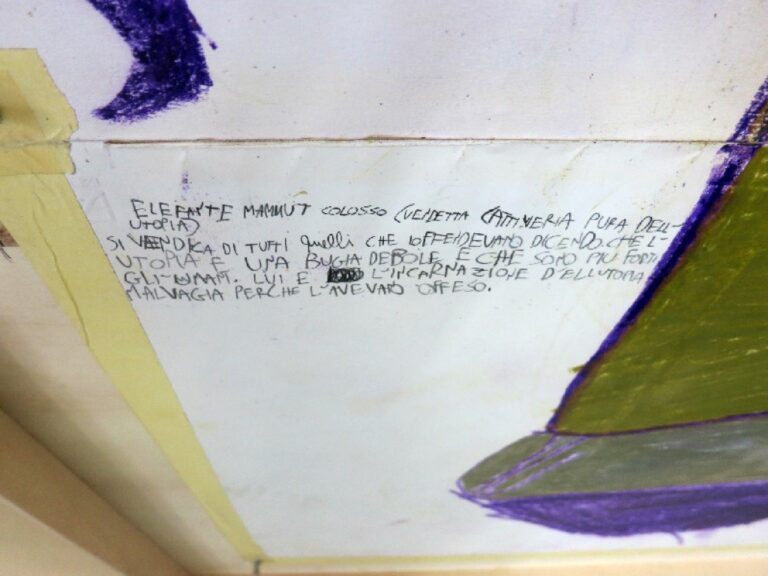 ELEFANTE MAMMUT COLOSSO (VENDETTA CATTIVERIA PURA DELL-
UTOPIA)
SI VENDICA DI TUTTI quelli CHE lOFFENDEVANO DICENDO CHE L'-
UTOPIA E UNA BUGIA DEBOLE E CHE SONO PIU FORTI
GLI UMANI. LUI E L'INCARNAZIONE D'ELLUTOPIA
MALVAGIA PERCHE L'AVEVANO OFFESO.